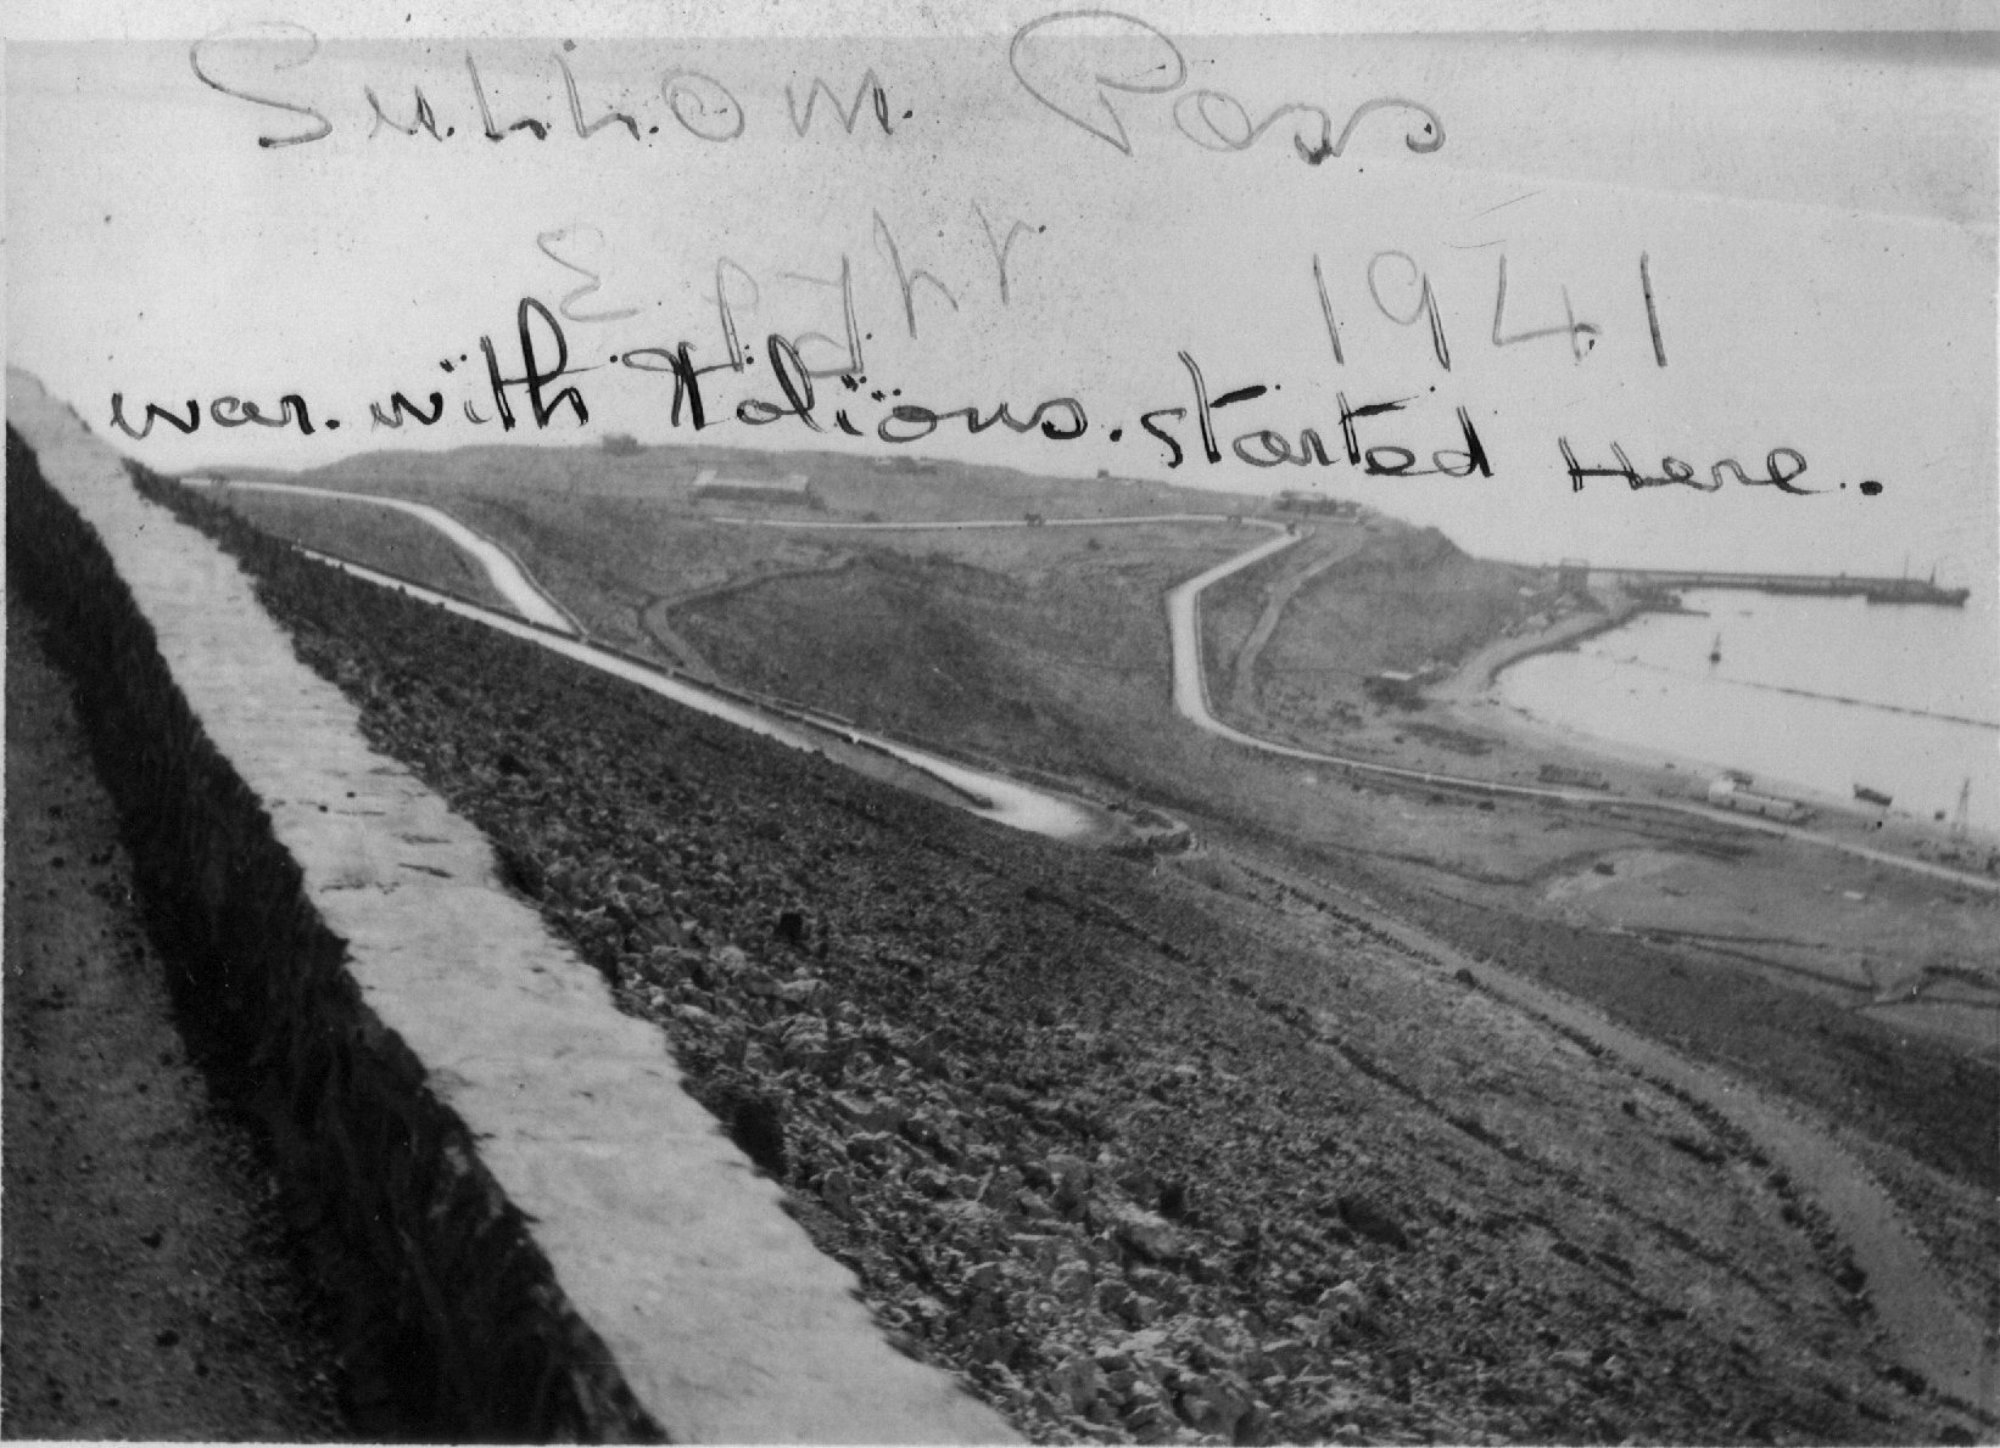 Sullom. Pass
Egypt 1941
war. with Italians. started Here.